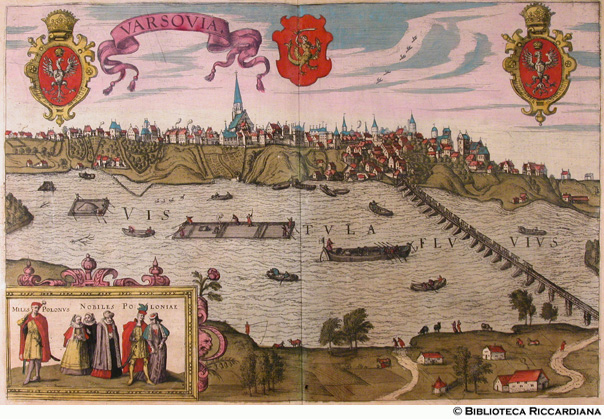 VARSOVIA.
VISTULA FLUVIUS
MILES POLONVS NOBILES POLONIAE
© BIBLIOTECA RICCARDIANA